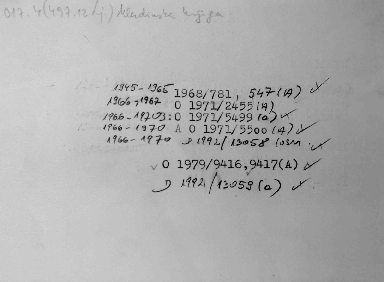 017.4(497.12 Lj)
1945-1965 1968/781, 547(A) ✓
1966-1967 O 1971/2455(A)
1966-19703: O 1971/5499(a) ✓
1966-1970 A O 1971/5500(A) ✓
1966-1970 D 1992/13058 ✓
✓ O 1979/9416,9417(A) ✓
D 1992/13059(a) ✓